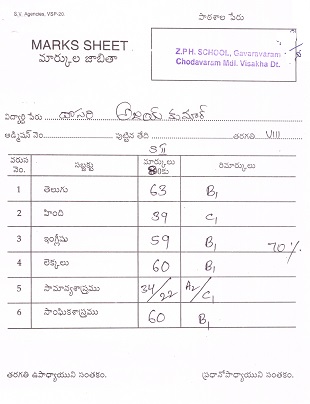 S.V. Agencies, VSP-20.
పాఠశాల పేరు
MARKS SHEET
మార్కుల జాబితా
Z.P.H. SCHOOL, Gavaravaram
Chodavaram Mdl. Visakha Dt.
విద్యార్థి పేరు దాసరి అజయ్ కుమార్
అడ్మిషన్ నెం. పుట్టిన తేది తరగతి VIII
SII
వరుస నెం. సబ్జక్టు మార్కులు కు రిమార్కులు
1 తెలుగు 63 B1
2 హింది 39 C1
3 ఇంగ్లీషు 59 B1 70%
4 లెక్కలు 60 B1
5 సామాన్యశాస్త్రము 34/22 A2/C1
6 సాంఘికశాస్త్రము 60 B1
తరగతి ఉపాధ్యాయుని సంతకం. ప్రధానోపాధ్యాయుని సంతకం.